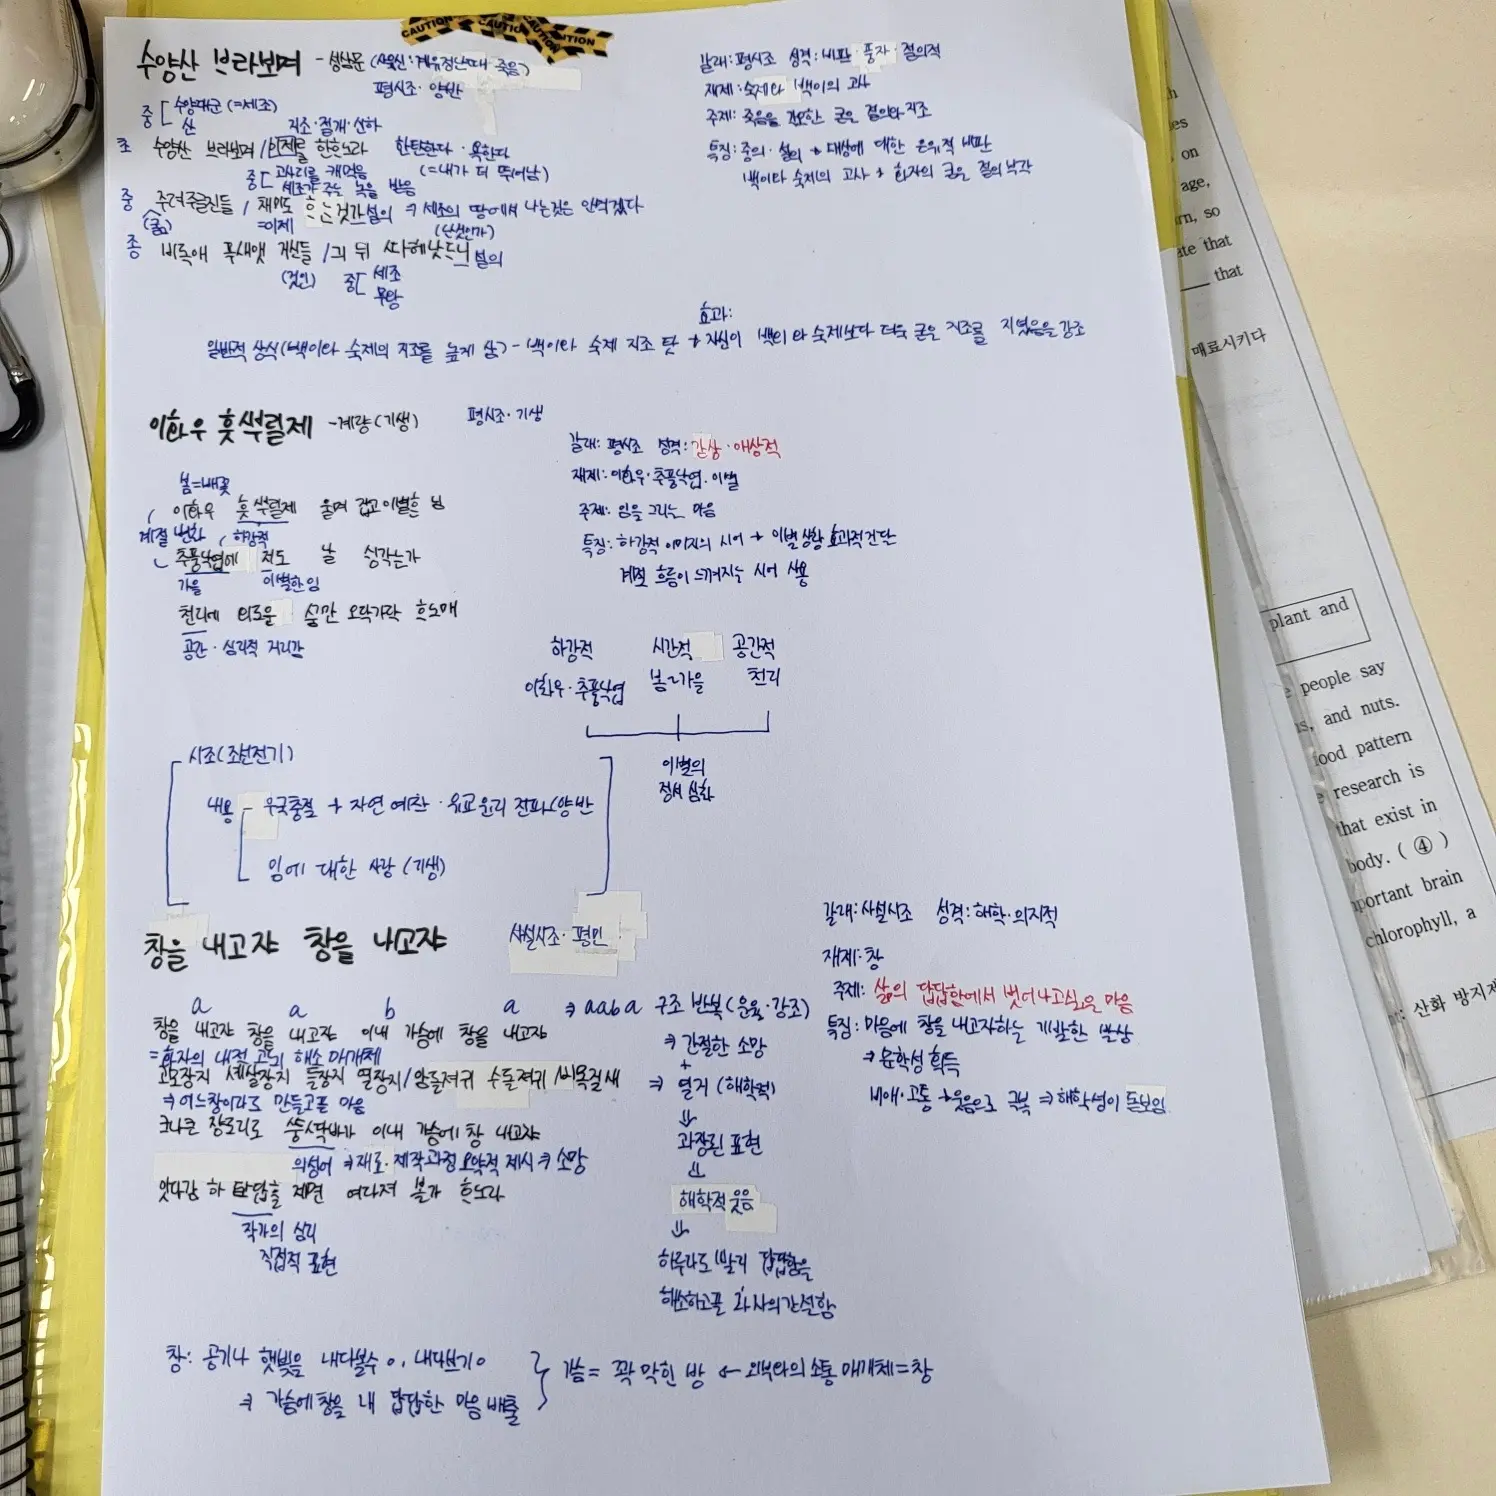 CAUTION CAUTION CAUTION
수양산 브라보며 - 성삼문 (사육신: 계유정난때 죽음)
평시조 · 양반
갈래: 평시조 성격: 비판 · 풍자 · 절의적
재제: 숙제와 백이의 고사
주제: 죽음을 각오한 굳은 절의와 지조
특징: 중의 · 설의 → 대상에 대한 은유적 비판
백이와 숙제의 고사 → 화자의 굳은 절의 부각
중 수양대군 (=세조)
산
지조 · 절개 · 산하
초 수양산 브라보며 / 이제를 한하노라 한탄한다 · 욕한다
중 고사리를 캐먹음 (=내가 더 뛰어남)
세조가 주는 녹을 받음
중 주려주글진들 / 채미도 하는것가 설의 → 세조의 땅에서 나는것은 안먹겠다
(굶고) =이제
종 비록애 푸새엣 거신들 / 긔 뒤 따헤낫드니 설의
(것인) 중 세조
무왕
효과:
일반적 상식(백이와 숙제의 지조를 높게 삼) - 백이와 숙제 지조 탓 → 자신이 백이와 숙제보다 더욱 굳은 지조를 지녔음을 강조
이화우 흣뿌릴제 - 계랑(기생) 평시조 · 기생
갈래: 평시조 성격: 감상 · 애상적
재제: 이화우 · 추풍낙엽 · 이별
주제: 임을 그리는 마음
특징: 하강적 이미지의 시어 → 이별상황 효과적전단
계절 흐름이 느껴지는 시어 사용
봄=배꽃
이화우 흣뿌릴제 울며 잡고 이별한 님
계절 변화 하강적
추풍낙엽에 저도 날 생각는가
가을 이별한임
천리에 외로운 꿈만 오락가락 하노매
공간 · 심리적 거리감
하강적 시간적 공간적
이화우 · 추풍낙엽 봄~가을 천리
이별의
정서 심화
시조(조선전기)
내용 - 우국충절 → 자연 예찬 · 유교윤리 전파(양반
임에 대한 사랑 (기생)
창을 내고쟈 창을 내고쟈 사설시조 · 평민
갈래: 사설시조 성격: 해학 · 의지적
재제: 창
주제: 삶의 답답함에서 벗어나고싶은 마음
특징: 마음에 창을 내고자하는 기발한 발상
→ 문학성 획득
비애 · 고통 → 웃음으로 극복 → 해학성이 돋보임
a a b a → aaba 구조 반복(운율 · 강조)
창을 내고쟈 창을 내고쟈 이내 가슴에 창을 내고쟈
=화자의 내적 고뇌 해소 매개체
고모장지 셰살장지 들장지 열장지 / 암돌져귀 수돌져귀 / 비목걸새
→ 어느창이라도 만들고픈 마음
크나큰 장도리로 뚱닥바가 이내 가슴에 창 내고쟈
의성어 → 재료 · 제작과정 요약적 제시 → 소망
잇다감 하 답답할 제면 여다져 볼가 하노라
작가의 심리
직접적 표현
→ 간절한 소망
+
→ 열거 (해학적)
⇓
과장된 표현
⇓
해학적 웃음
⇓
하루라도 빨리 답답함을
해소하고픈 화자의간절함
창: 공기나 햇빛을 내다볼수 o, 내다보기 o
→ 가슴에 창을 내 답답한 마음 배출
가슴 = 꽉 막힌 방 ← 외부와의 소통 매개체 = 창
매료시키다
plant and
people say
and nuts.
food pattern
research is
that exist in
body. ( ④ )
brain
chlorophyll, a
산화 방지제
on
age,
so
that
that